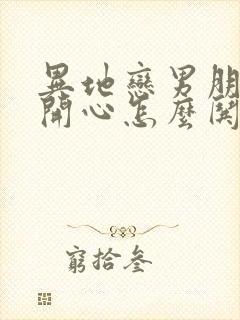 異地戀男朋
開心怎麼開
窮拾叁